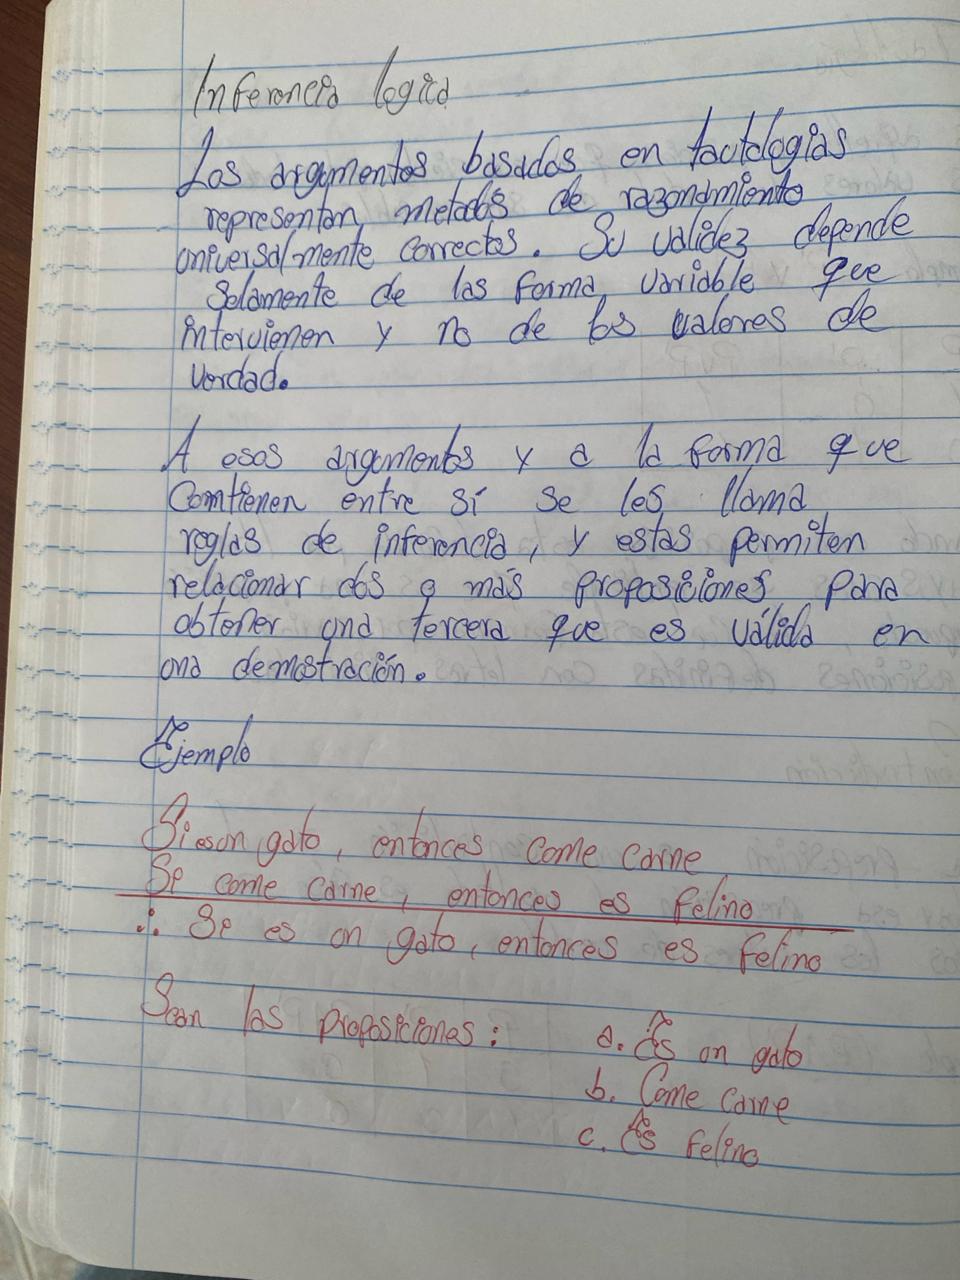 Inferencia logica
Los argumentos basados en tautologias
representan metodos de razonamiento
universalmente correctos. Su validez depende
solamente de las forma variable que
intervienen y no de los valores de
verdad.
A esos argumentos y a la forma que
Comtienen entre sí se les llama
reglas de inferencia, y estas permiten
relacionar dos o más proposiciones para
obtener una tercera que es válida en
una demostración.
Ejemplo
Si es un gato, entonces come carne
Se come carne, entonces es felino
∴ Se es un gato, entonces es felino
Sean las proposiciones: a. Es un gato
b. Come carne
c. Es felino